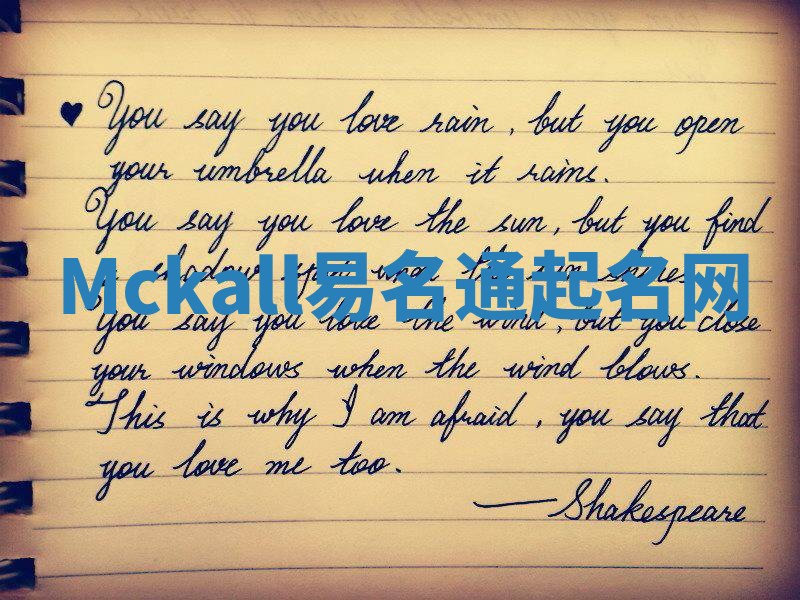 You say you love rain, but you open
your umbrella when it rains.
You say you love the sun, but you find
a shadow spot when the sun shines.
Mckall易名通起名网
You say you love the wind, but you close
your windows when the wind blows.
This is why I am afraid, you say that
you love me too.
—Shakespeare